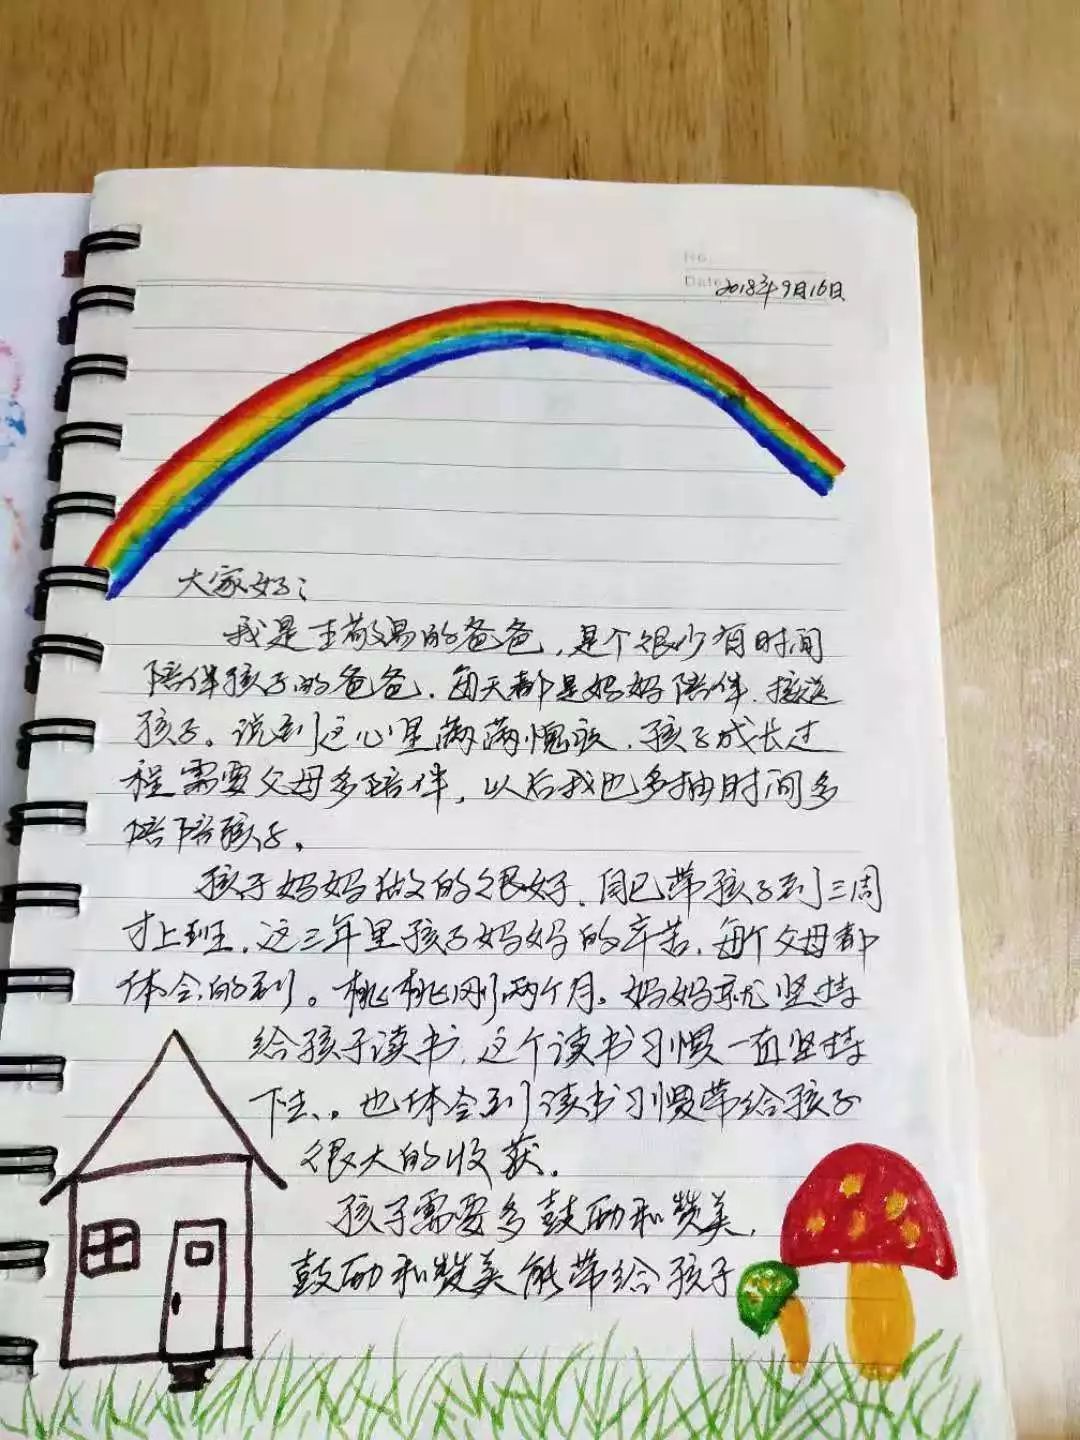 No.
Date 2018年9月16日
大家好:
我是王敬易的爸爸,是个很少有时间
陪伴孩子的爸爸.每天都是妈妈陪伴.接送
孩子。说到这心里满满愧疚.孩子成长过
程需要父母多陪伴,以后我也多抽时间多
陪陪孩子。
孩子妈妈做的很好.自已带孩子到三周
才上班.这三年里孩子妈妈的辛苦.每个父母都
体会的到。桃桃刚两个月。妈妈就坚持
给孩子读书.这个读书习惯一直坚持
下去.。也体会到读书习惯带给孩子
很大的收获.
孩子需要多鼓励和赞美.
鼓励和赞美能带给孩子